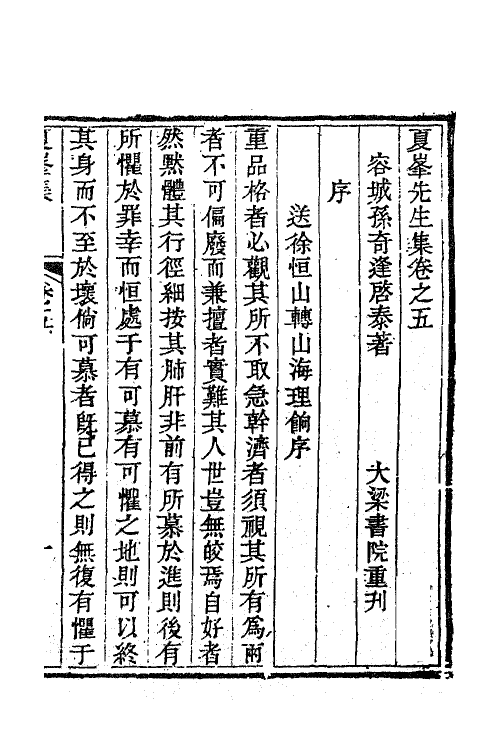 夏峯先生集卷之五
容城孫奇逢啓泰著　大梁書院重刋
序
送徐恒山轉山海理餉序
重品格者必觀其所不取急幹濟者須視其所有爲兩
者不可偏廢而兼擅者實難其人世豈無皎焉自好者
然黙體其行徑細按其肺肝非前有所慕於進則後有
所懼於罪幸而恒處于有可慕有可懼之地則可以終
其身而不至於壞倘可慕者旣已得之則無復有懼于
夏峯集
卷之五
一